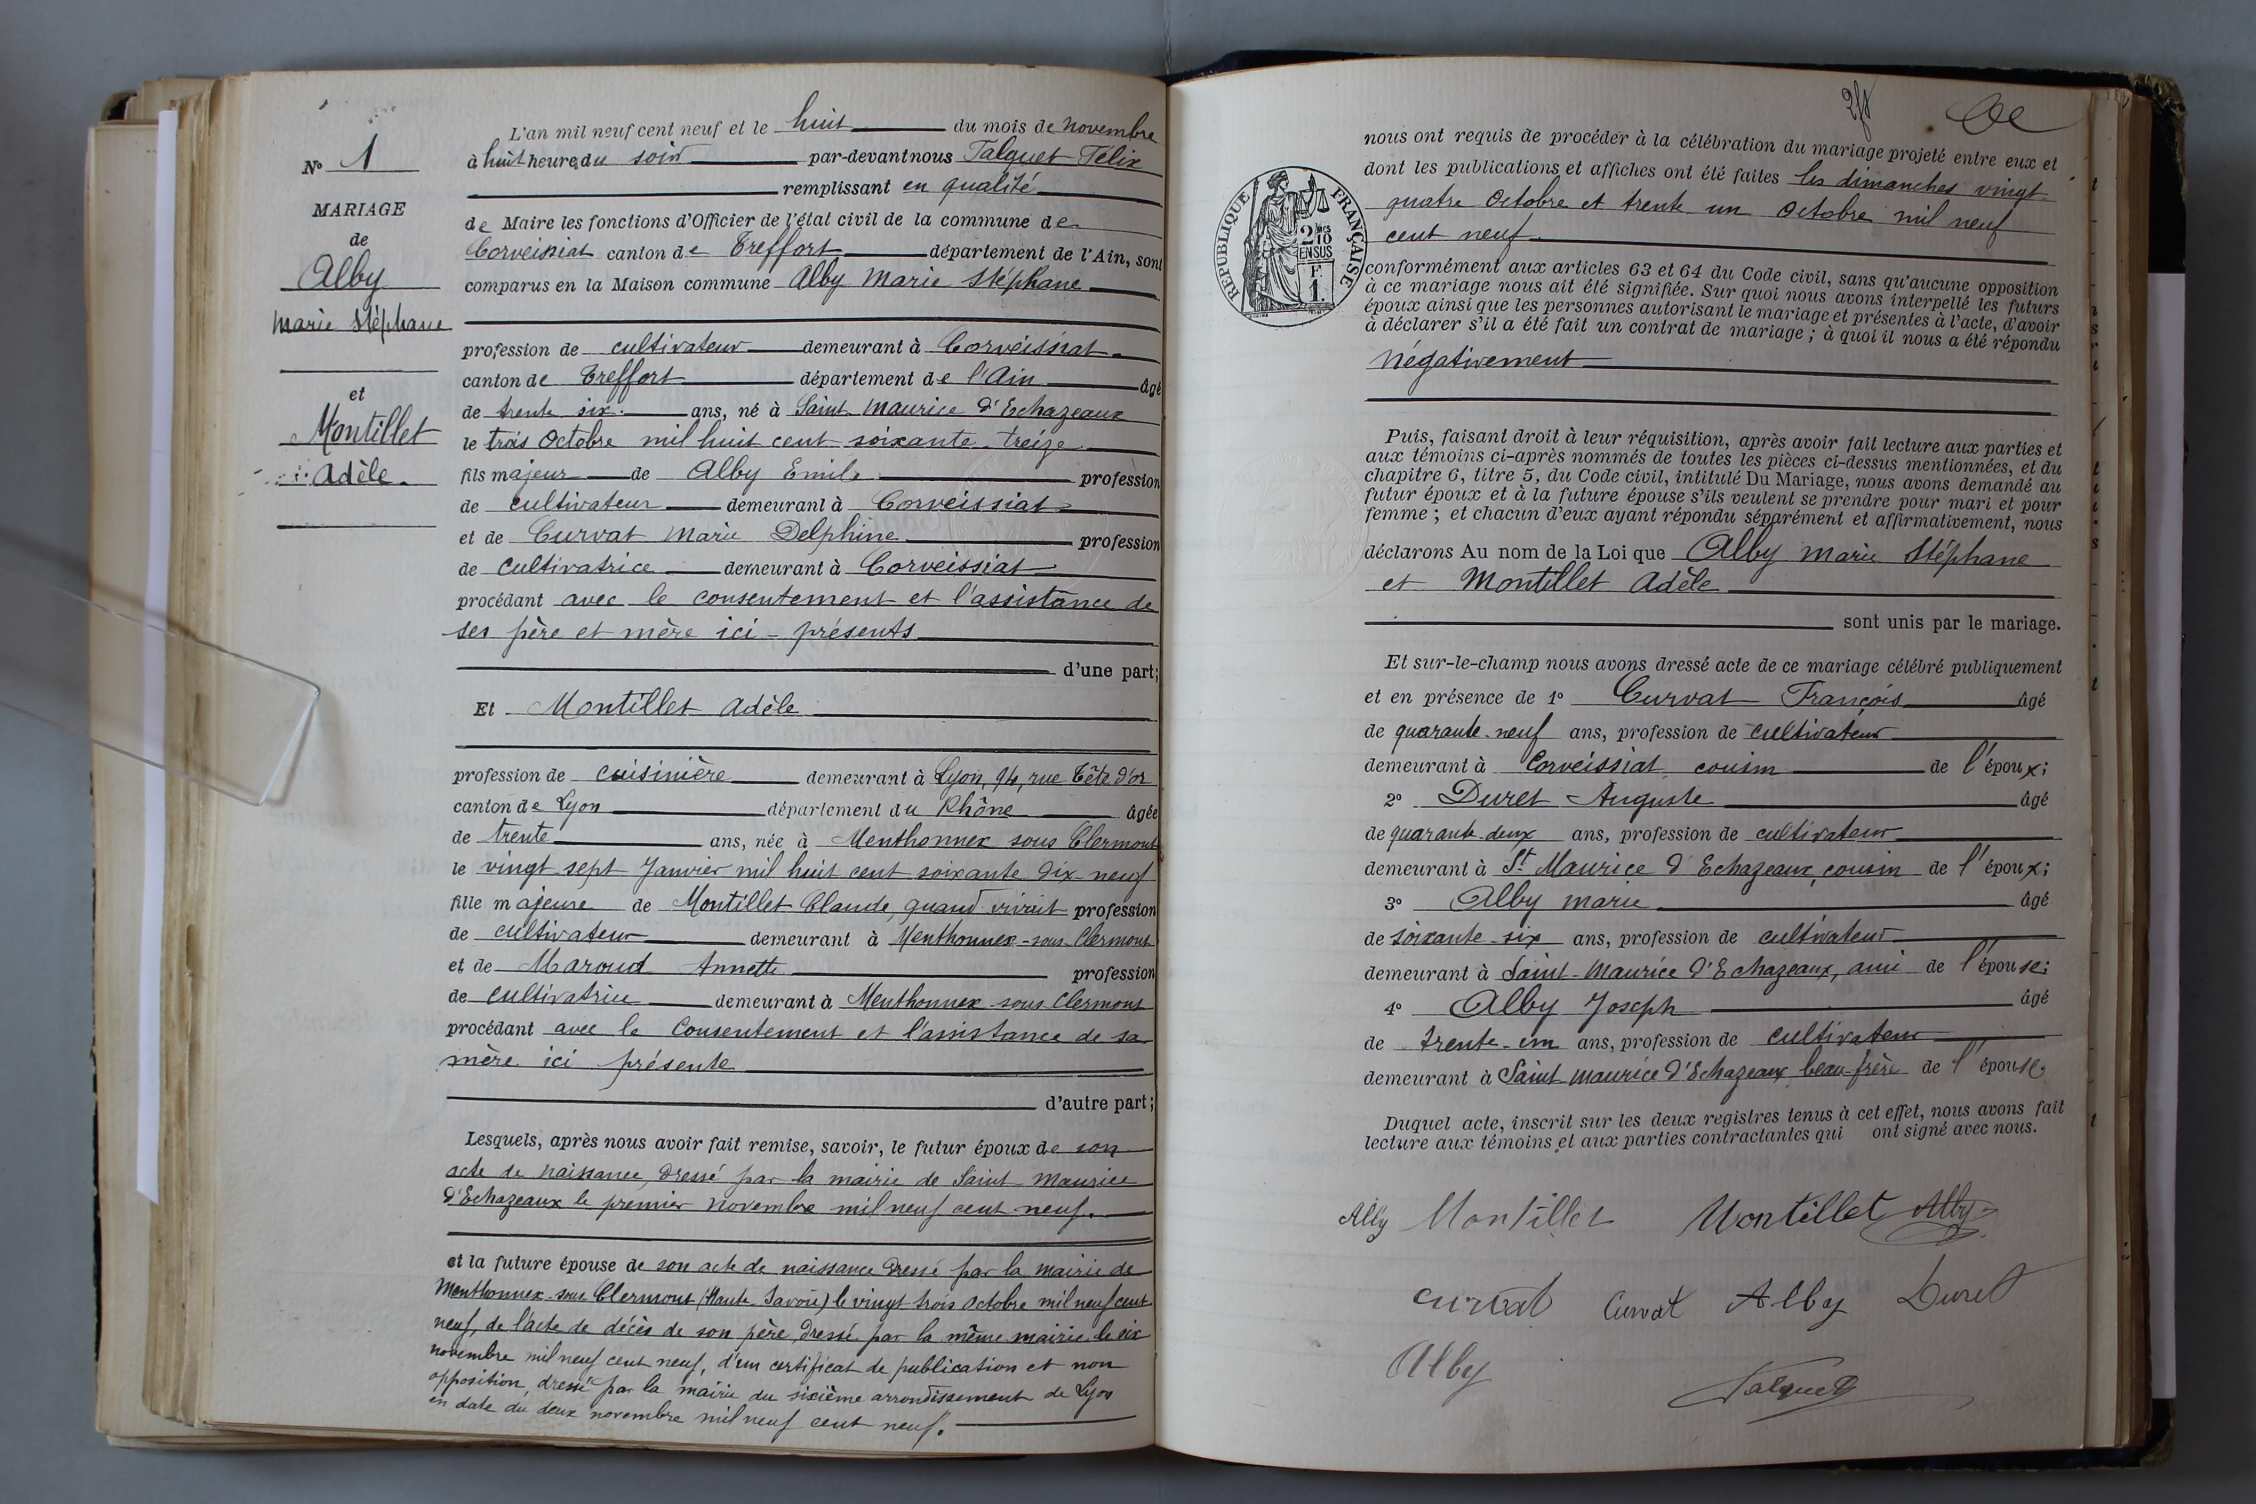 N° 1
MARIAGE
de
Alby
Marie Stéphane
et
Montillet
Adèle.
L'an mil neuf cent neuf et le huit du mois de novembre
à huit heures du soir par-devant nous Talquet Félix
remplissant en qualité
de Maire les fonctions d'Officier de l'état civil de la commune de
Corveissiat canton de Treffort département de l'Ain, sont
comparus en la Maison commune Alby Marie Stéphane
profession de cultivateur demeurant à Corveissiat
canton de Treffort département de l'Ain âgé
de trente six ans, né à Saint Maurice d'Echazeaux
le trois Octobre mil huit cent soixante treize
fils majeur de Alby Emile profession
de cultivateur demeurant à Corveissiat
et de Curvat Marie Delphine profession
de cultivatrice demeurant à Corveissiat
procédant avec le consentement et l'assistance de
ses père et mère ici-présents
d'une part;
Et Montillet Adèle
profession de cuisinière demeurant à Lyon, 94, rue Tête d'or
canton de Lyon département du Rhône âgée
de trente ans, née à Menthonnex sous Clermont
le vingt sept Janvier mil huit cent soixante dix-neuf
fille majeure de Montillet Claude, quand vivait profession
de cultivateur demeurant à Menthonnex-sous-Clermont
et de Maroud Annette profession
de cultivatrice demeurant à Menthonnex-sous-Clermont
procédant avec le Consentement et l'assistance de sa
mère ici présente
d'autre part;
Lesquels, après nous avoir fait remise, savoir, le futur époux de son
acte de naissance, dressé par la mairie de Saint-Maurice
d'Echazeaux le premier novembre mil neuf cent neuf.
et la future épouse de son acte de naissance dressé par la mairie de
Menthonnex-sous Clermont (Haute-Savoie) le vingt trois Octobre mil neuf cent
neuf, de l'acte de décès de son père, dressé par la même mairie le six
novembre mil neuf cent neuf, d'un certificat de publication et non
opposition, dressé par la mairie du sixième arrondissement de Lyon
en date du deux novembre mil neuf cent neuf.
RÉPUBLIQUE FRANÇAISE
2/10
EN SUS
F.
1
nous ont requis de procéder à la célébration du mariage projeté entre eux et
dont les publications et affiches ont été faites les dimanches vingt
quatre Octobre et trente un Octobre mil neuf
cent neuf
conformément aux articles 63 et 64 du Code civil, sans qu'aucune opposition
à ce mariage nous ait été signifiée. Sur quoi nous avons interpellé les futurs
époux ainsi que les personnes autorisant le mariage et présentes à l'acte, d'avoir
à déclarer s'il a été fait un contrat de mariage; à quoi il nous a été répondu
négativement
Puis, faisant droit à leur réquisition, après avoir fait lecture aux parties et
aux témoins ci-après nommés de toutes les pièces ci-dessus mentionnées, et du
chapitre 6, titre 5, du Code civil, intitulé Du Mariage, nous avons demandé au
futur époux et à la future épouse s'ils veulent se prendre pour mari et pour
femme; et chacun d'eux ayant répondu séparément et affirmativement, nous
déclarons Au nom de la Loi que Alby Marie Stéphane
et Montillet Adèle
sont unis par le mariage.
Et sur-le-champ nous avons dressé acte de ce mariage célébré publiquement
et en présence de 1° Curvat François âgé
de quarante-neuf ans, profession de cultivateur
demeurant à Corveissiat, cousin de l'époux;
2° Duret Auguste âgé
de quarante-deux ans, profession de cultivateur
demeurant à St Maurice d'Echazeaux, cousin de l'époux;
3° Alby Marie âgé
de soixante-six ans, profession de cultivateur
demeurant à Saint-Maurice d'Echazeaux, ami de l'épouse;
4° Alby Joseph âgé
de trente-un ans, profession de cultivateur
demeurant à Saint Maurice d'Echazeaux beau-frère de l'épouse.
Duquel acte, inscrit sur les deux registres tenus à cet effet, nous avons fait
lecture aux témoins et aux parties contractantes qui ont signé avec nous.
Alby Montillet Montillet Alby
Curvat Curvat Alby Duret
Alby Talquet